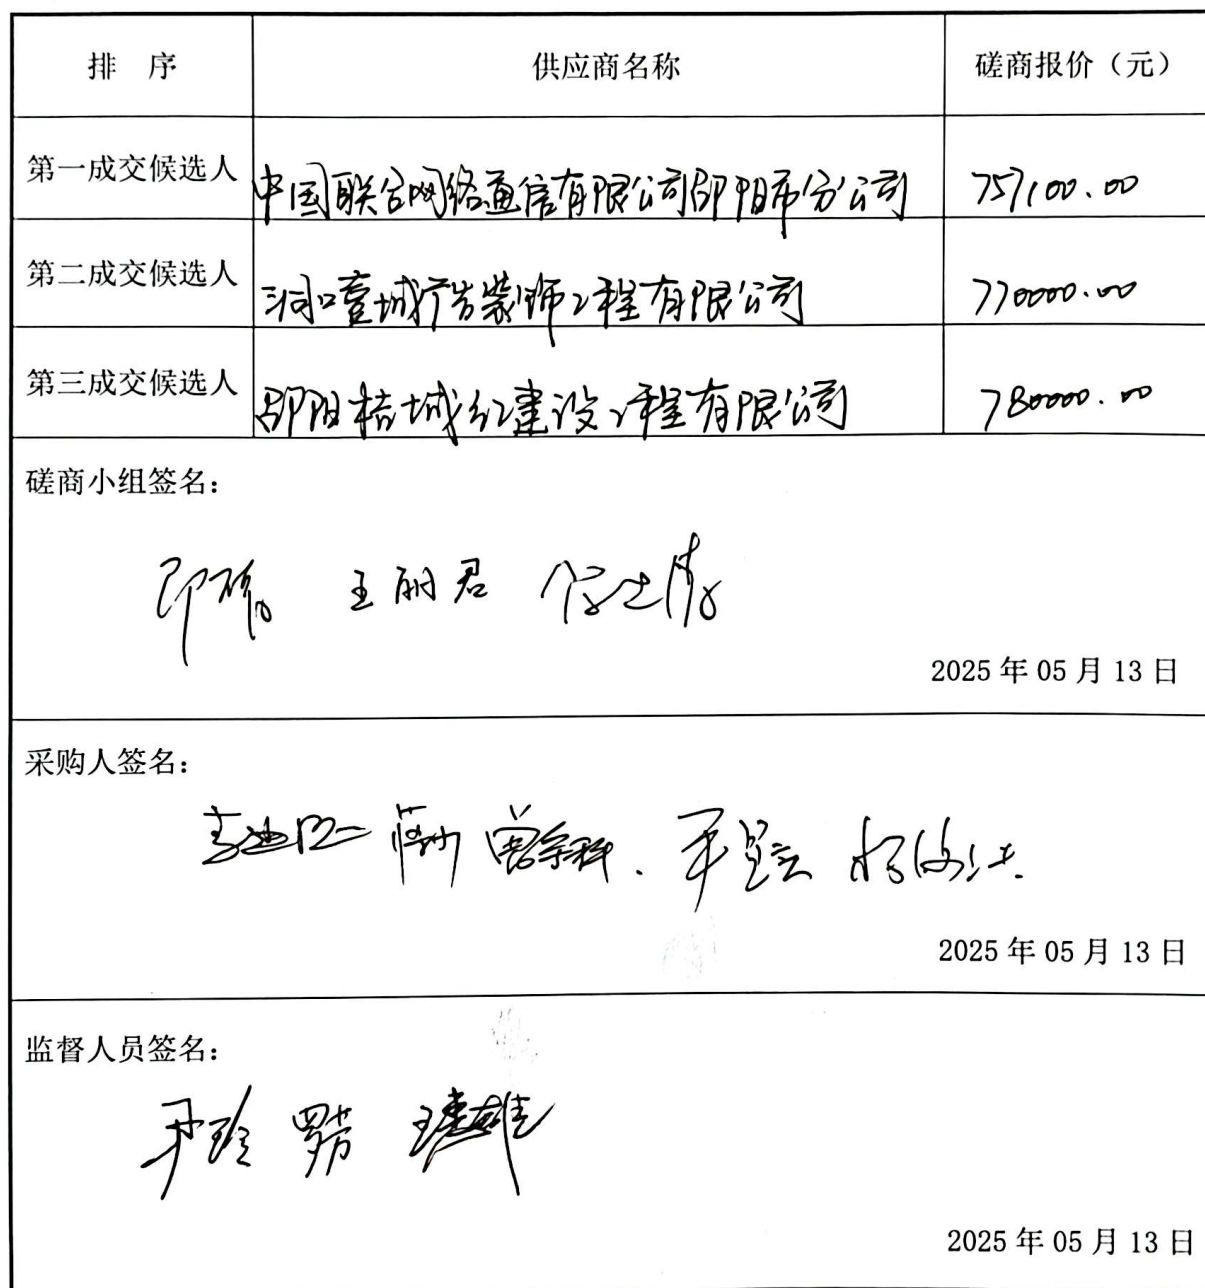 排 序 供应商名称 磋商报价（元）
第一成交候选人 中国联合网络通信有限公司邵阳市分公司 757100.00
第二成交候选人 洞口壹城广告装饰工程有限公司 770000.00
第三成交候选人 邵阳桔城红建设工程有限公司 780000.00
磋商小组签名：
王丽君
2025 年 05 月 13 日
采购人签名：
2025 年 05 月 13 日
监督人员签名：
尹玲 罗芳
2025 年 05 月 13 日